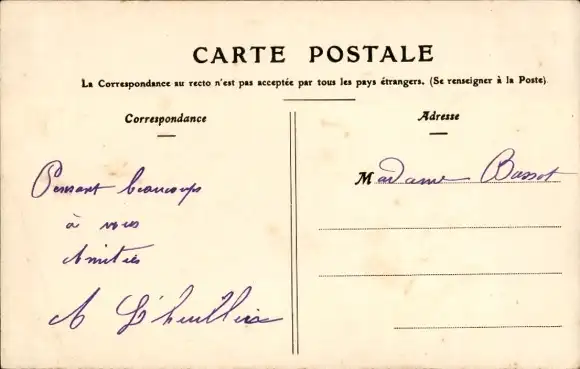 CARTE POSTALE
La Correspondance au recto n'est pas acceptée par tous les pays étrangers. (Se renseigner à la Poste)
Correspondance
Pensant beaucoup
à vous
Amitiés
Adresse
Madame Bassot